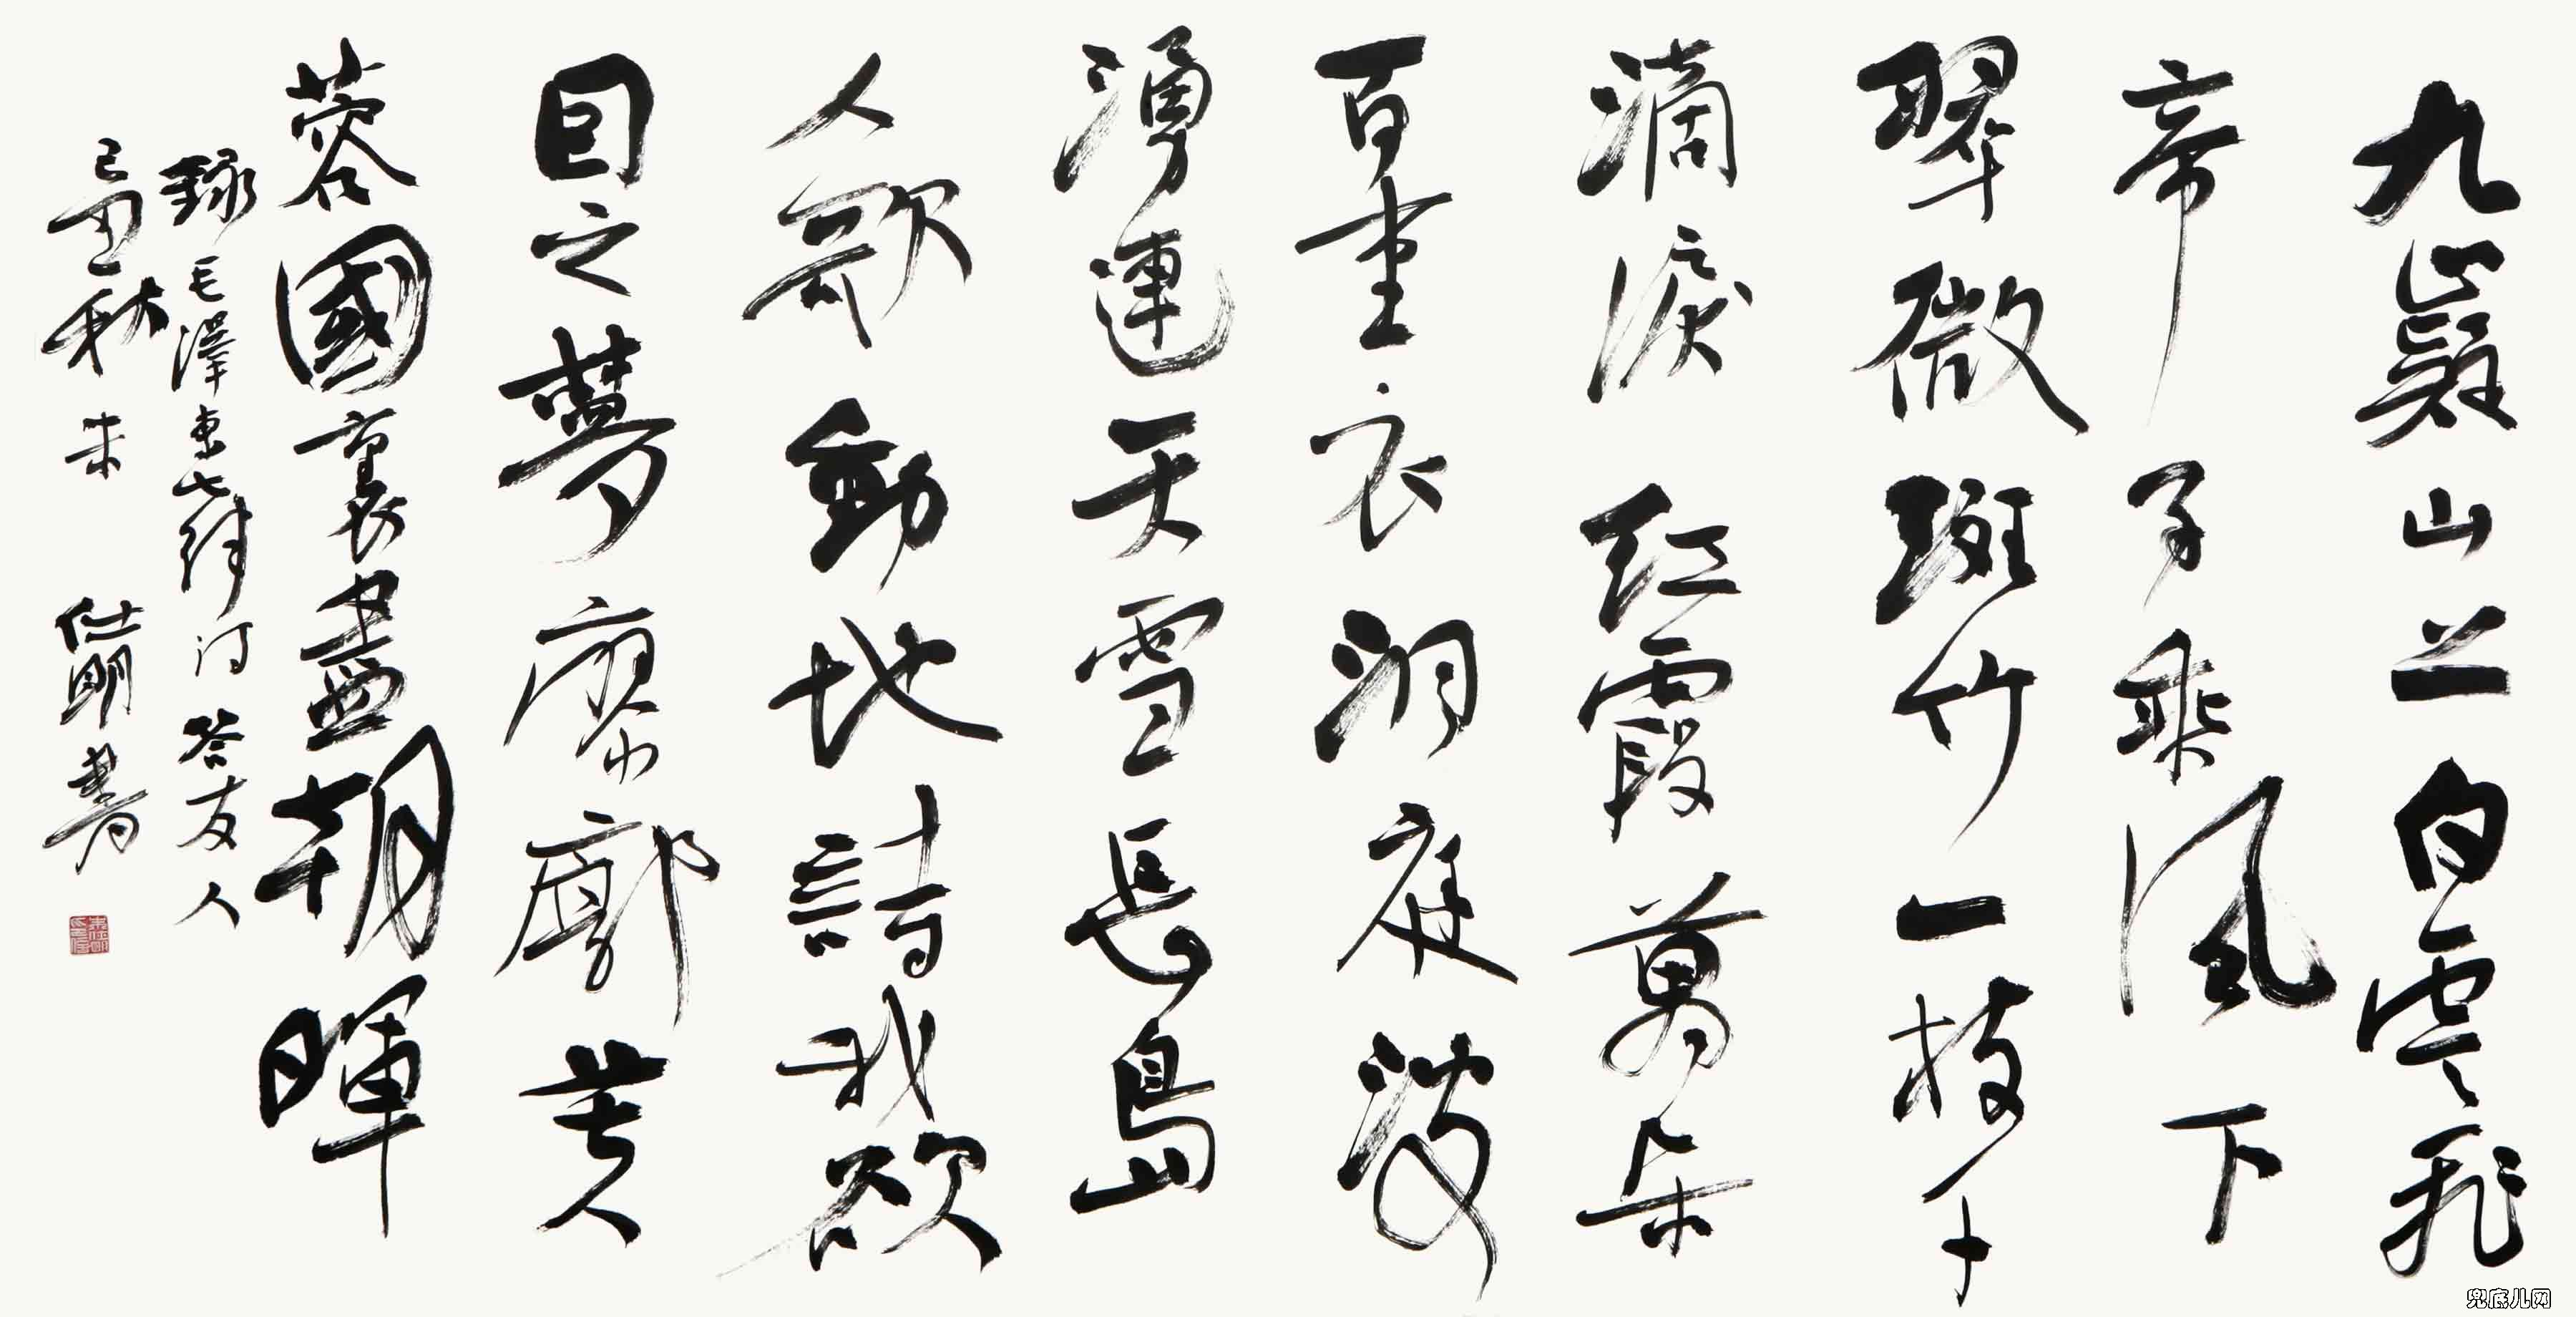 九嶷山上白雲飛
帝子乘風下
翠微斑竹一枝千
滴淚紅霞萬朵
百重衣洞庭波
湧連天雪長島
人歌動地詩我欲
因之夢廖廓芙
蓉國裏盡朝暉
錄毛澤東七律詩答友人
己丑秋末 仕明書
兜底儿网